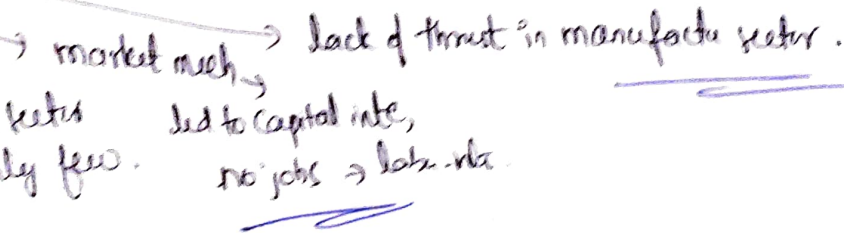 → market mech → → lack of thrust in manufactu sector.
led to capital inte,
ly few. no jobs →